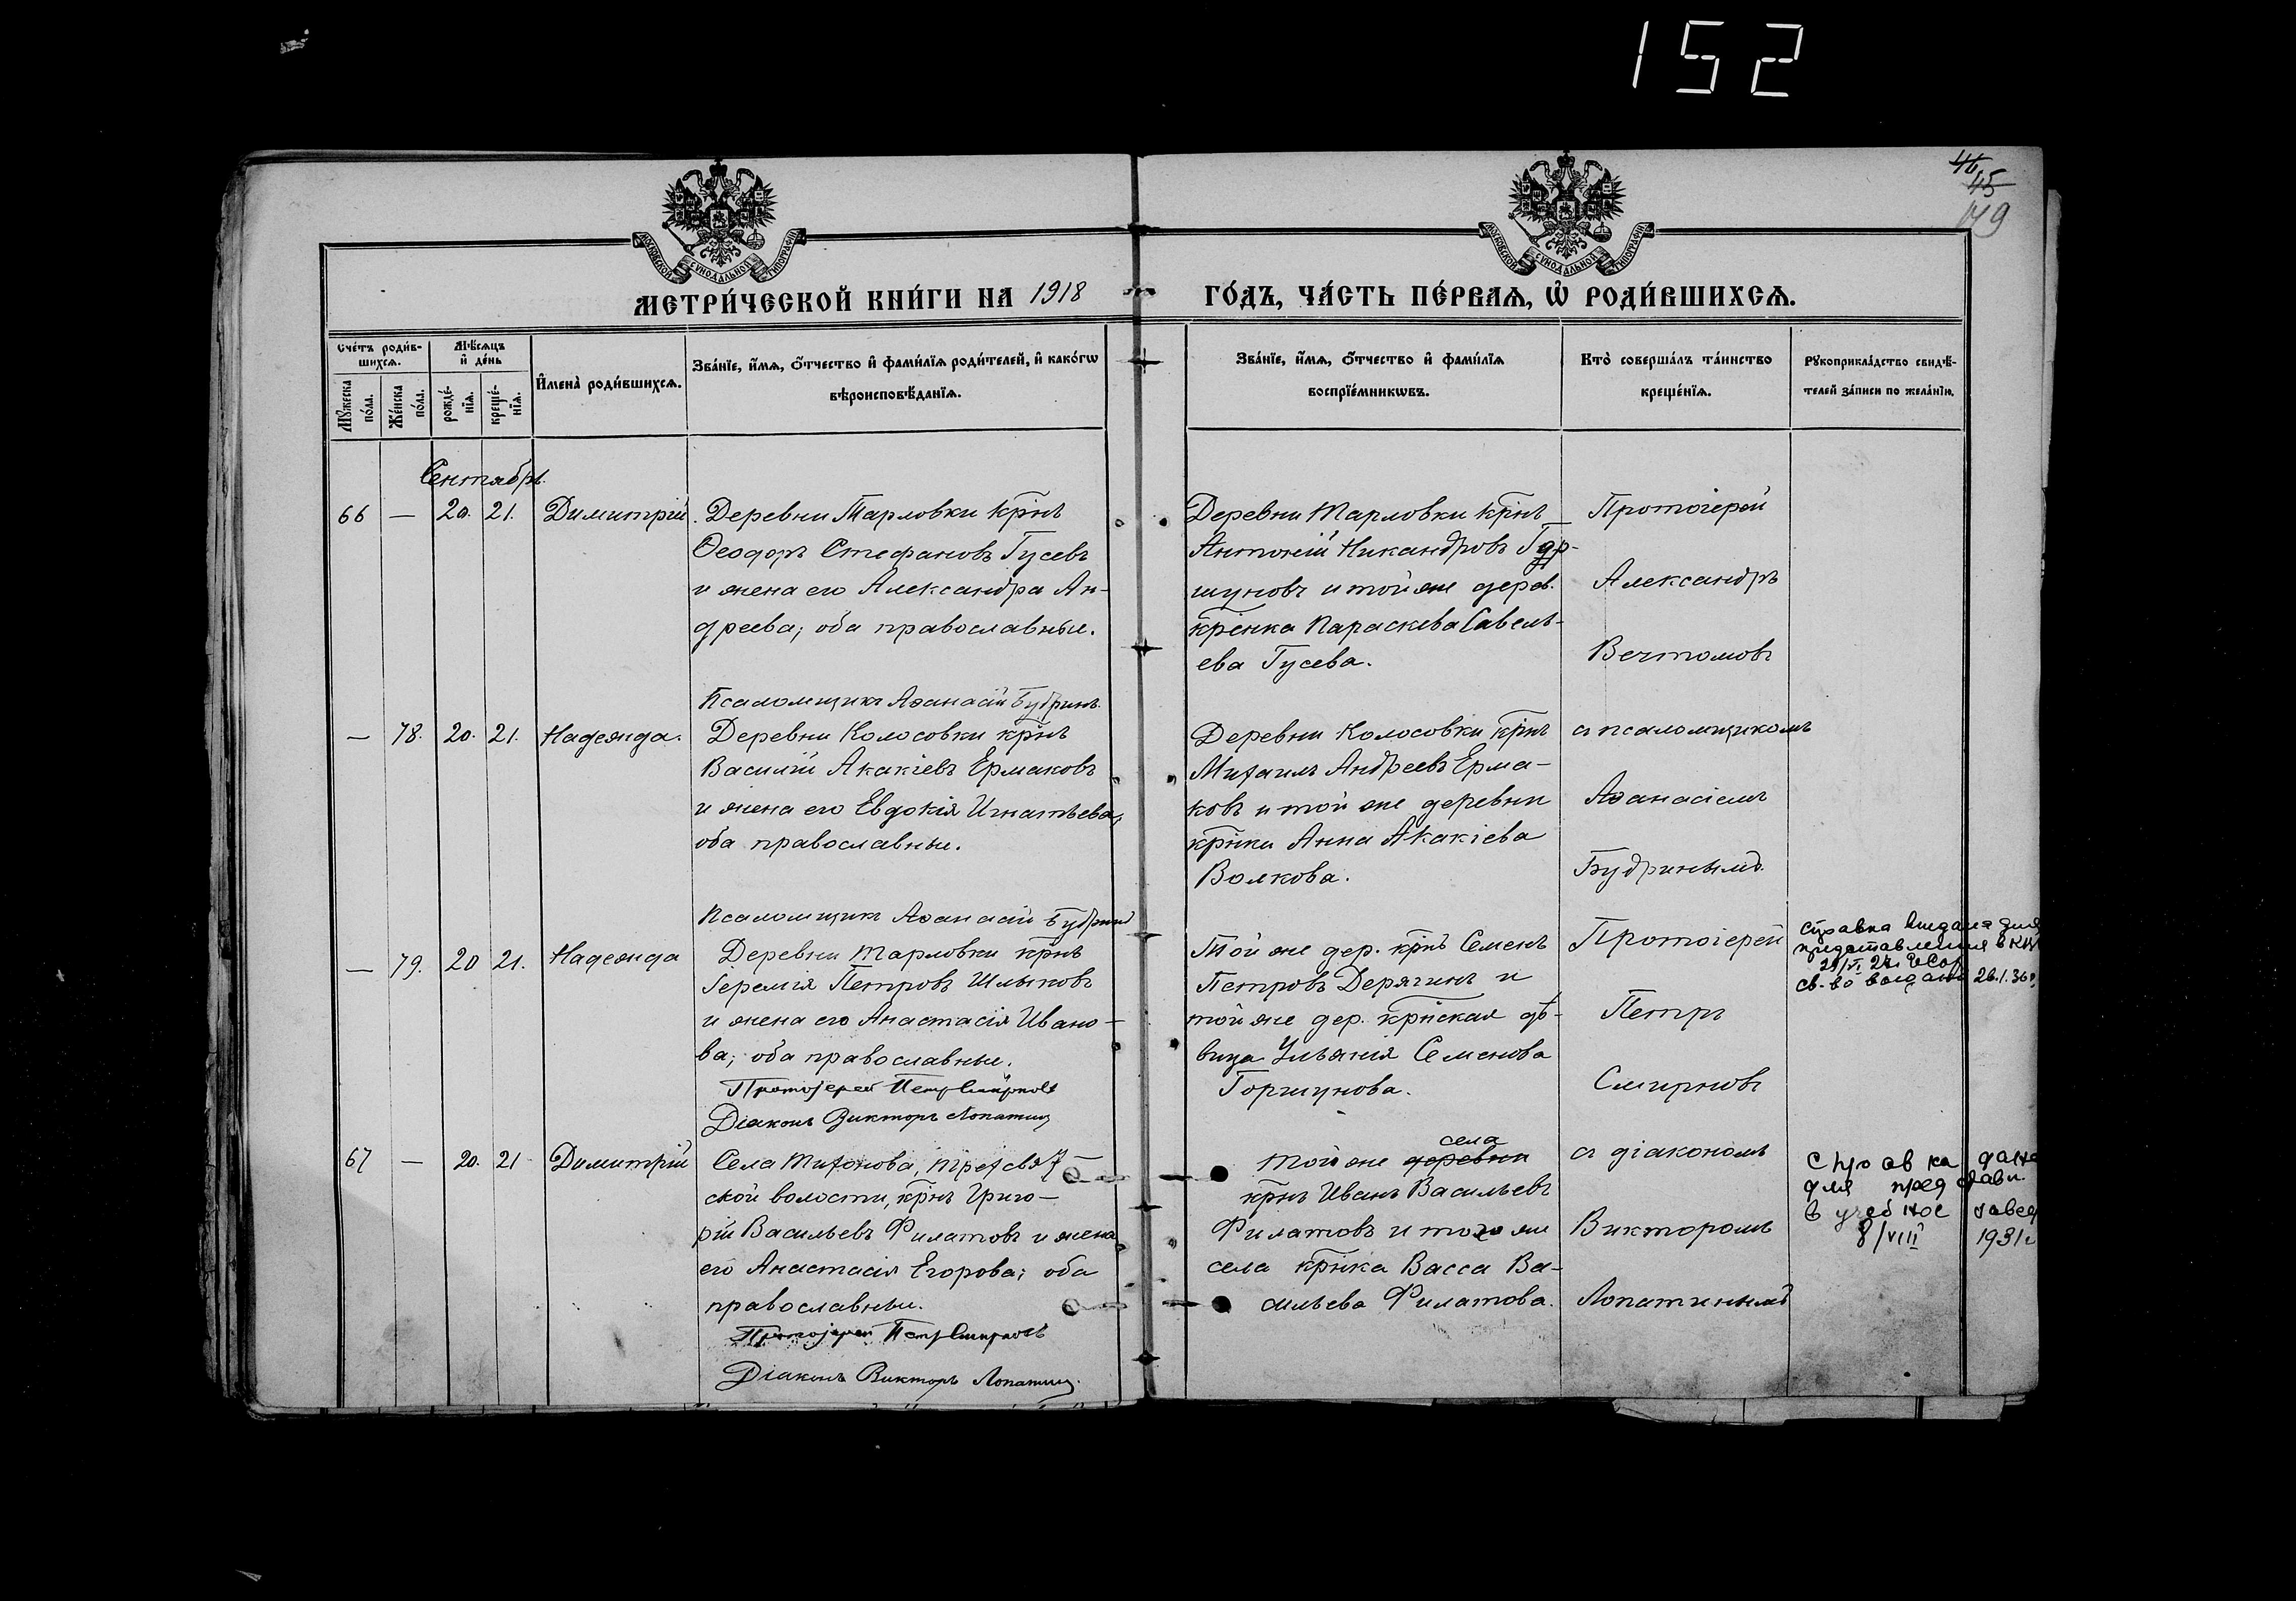 152
46
45
149
МОСКОВСКОЙ СѴНОДАЛЬНОЙ ТИПОГРАФІИ
МОСКОВСКОЙ СѴНОДАЛЬНОЙ ТИПОГРАФІИ
МЕТРИ́ЧЕСКОЙ КНИ́ГИ НА 1918
ГО́ДЪ, ЧА́СТЬ ПЕ́РВАѦ, Ѡ҆ РОДИ́ВШИХСѦ.
Сче́тъ роди́в-
шихся.
Мѣ́сяцъ
и҆ де́нь
Мꙋ́жеска
по́ла.
Же́нска
по́ла.
рожде́-
нїѧ.
креще́-
нїѧ.
И҆мена̀ роди́вшихсѧ.
Зва́нїе, и҆́мѧ, ѻ҆́тчество и҆ фами́лїѧ роди́телей, и҆ како́гѡ
вѣроисповѣ́данїѧ.
Зва́нїе, и҆́мѧ, ѻ҆́тчество и҆ фами́лїѧ
воспрїе́мникѡвъ.
Кто̀ соверша́лъ та́инство
креще́нїѧ.
Рꙋкоприкла́дство свидѣ́-
телей за́писи по жела́нїю.
Сентябрь.
66 — 20. 21. Димитрій.
Деревни Тарловки крнъ
Ѳеодоръ Стефановъ Гусевъ
и жена его Александра Ан-
дреева; оба православные.
Деревни Тарловки крнъ
Антоній Никандровъ Гор-
шуновъ и той же дерев.
крснка Параскева Савель-
ева Гусева.
Протоіерей
Александръ
Вечтомовъ
Псаломщикъ Аѳанасій Будринъ.
— 78. 20. 21. Надежда.
Деревни Колосовки крнъ
Василій Акакіевъ Ермаковъ
и жена его Евдокія Игнатьева;
оба православные.
Деревни Колосовки крнъ
Михаилъ Андреевъ Ерма-
ковъ и той же деревни
крнки Анна Акакіева
Волкова.
съ псаломщикомъ
Аѳанасіемъ
Будринымъ.
Псаломщикъ Аѳанасій Будринъ
— 79. 20 21. Надежда
Деревни Тарловки крнъ
Іеремія Петровъ Шлыковъ
и жена его Анастасія Ивано-
ва; оба православные.
Протоіерей Петръ Смирновъ
Діаконъ Викторъ Лопатинъ
Той же дер. крнъ Семенъ
Петровъ Дерягинъ и
той же дер. крнская дѣ-
вица Ульянія Семенова
Горшунова.
Протоіерей
Петръ
Смирновъ
Справка выдана для
представления в
св-во выдано 26.1.36г.
67 — 20. 21 Димитрій
Села Тихонова, Трехсвят-
ской волости, крнъ Григо-
рій Васильевъ Филатовъ и жена
его Анастасія Егорова; оба
православные.
Протоіерей Петръ Смирновъ
Діаконъ Викторъ Лопатинъ.
села
Той же деревни
крнъ Иванъ Васильевъ
Филатовъ и того же
села крнка Васса Ва-
сильева Филатова.
съ діакономъ
Викторомъ
Лопатинымъ
Справка дана
для представл.
в учебное завед
8/VIII 1931г